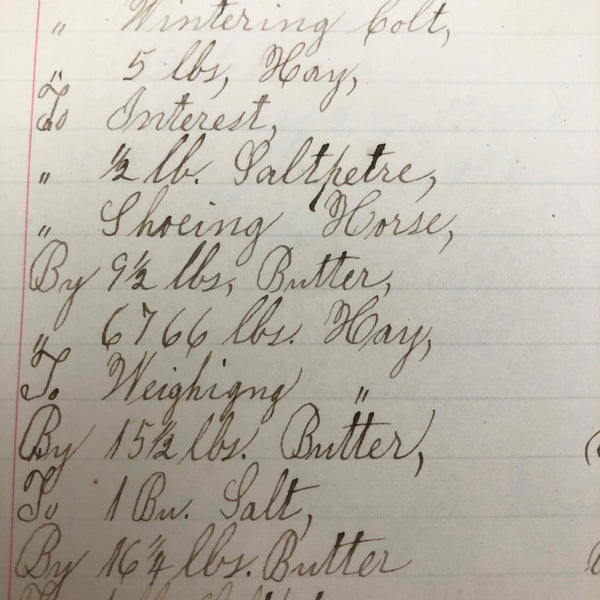 " Wintering Colt,
" 5 lbs, Hay,
To Interest,
" ½ lb. Saltpetre,
" Shoeing Horse,
By 9½ lbs, Butter,
" 6766 lbs. Hay,
To Weighigng "
By 15½ lbs. Butter,
To 1 Bu. Salt,
By 16¼ lbs. Butter